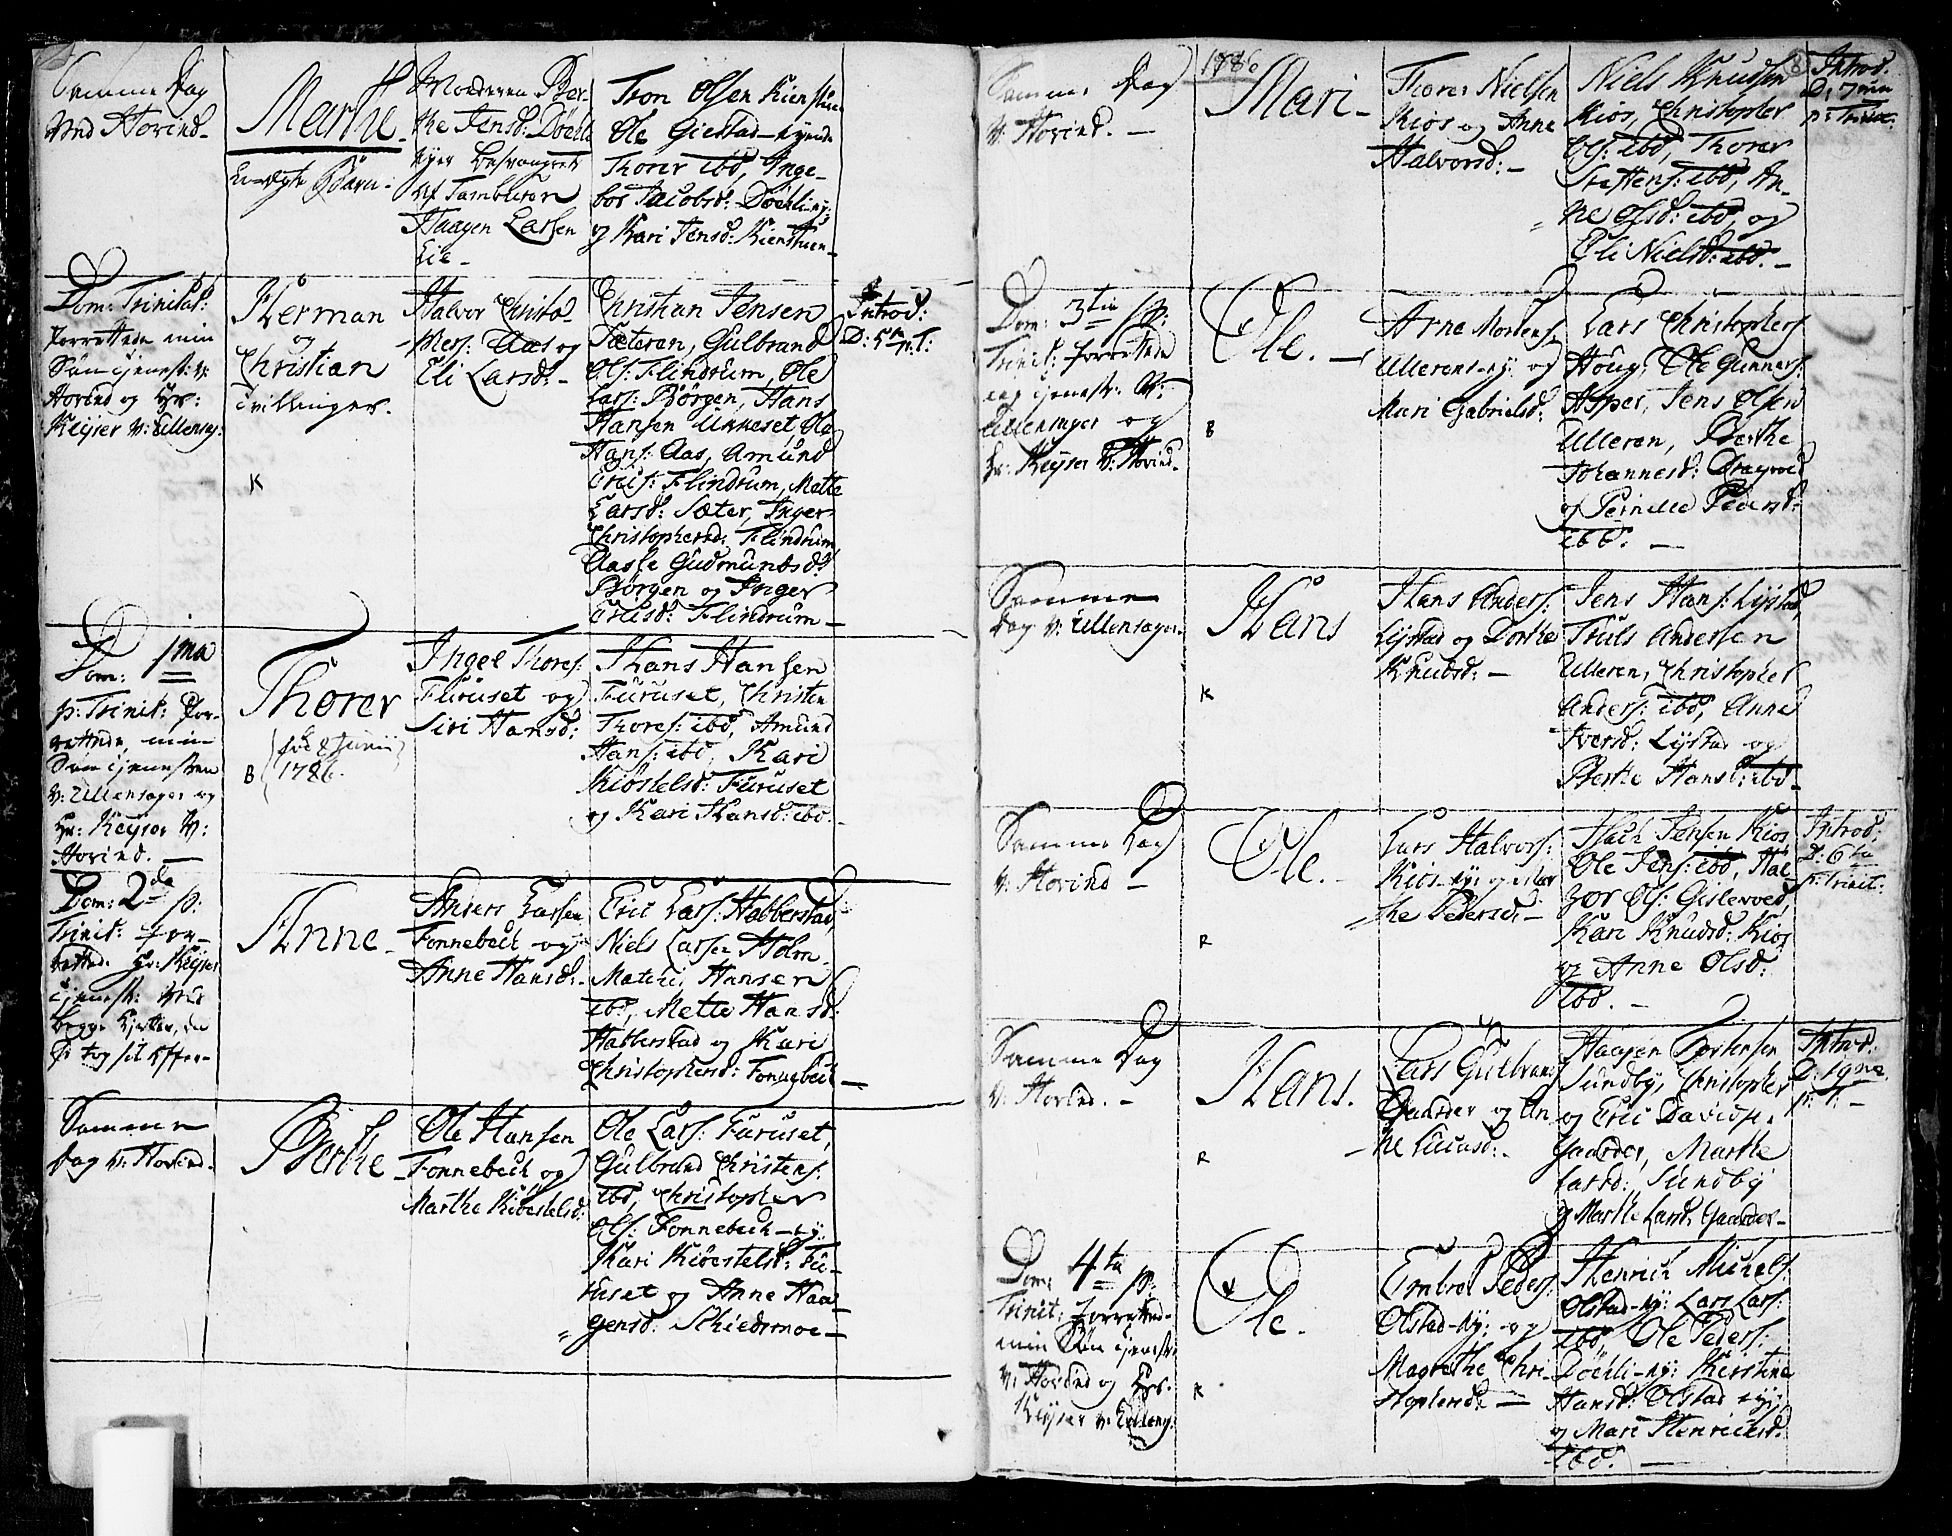 Samme Dag
ved Hovind.
Marthe.
Uægte Barn.
Moderen Ber-
the Jensd: Døhli
eyer besvangret
af Tamburen
Haagen Larsen
Lie.
Tron Olsen Kienstuen
Ole Giestad-eyende
Thorer ibd, Inge-
bor Jacobsd: Døhli-ey:
og Kari Jensd: Kienstuen-
Dom: Trinitat:
Forrettede min
Søn tjenest: v:
Hovind og Hr:
Keyser v: Ullens:
Herman
og
Christian
tvillinger.
K
Halvor Christo-
phers: Aas og
Eli Larsd:-
Christian Jensen
Sæteren, Gulbrand
Ols: Flindrum, Ole
Lars: Børgen, Hans
Hansen Ukkeset, Ole
Hans: Aas, Amund
Erics: Flindrum, Mette
Larsd: Sæter, Inger
Christophersd: Flindrum
Aasse Gudmundsd:
Børgen og Inger
Ericsd: Flindrum-
Introd:
D: 5te p:T:
Dom: 1ma
p: Trinit: For-
rettede min
Søn tjenesten
v: Ullensager og
Hr: Keyser v:
Hovind.
Thorer
fød 8 Junii
1786.
B
Ingel Thores:
Furuset og
Siri Hansd:
Hans Hansen
Furuset, Christen
Thores: ibd, Amund
Hans: ibd, Kari
Kiøstelsd: Furuset
og Kari Hansd: ibd.
Dom: 2de p:
Trinit: for-
rettede Hr: Keyser
tjenest: ved
begge Kirker, da
Anne-
Anders Larsen
Fonnebech og
Anne Hansd:-
Eric Lars: Habberstad,
Niels Larsen Holm,
Hansen
ibd, Mette Hansd:
Habberstad og Kari
Christophersd: Fonnebech-
Samme
Dag v: Hovind.
Berthe
Ole Hansen
Fonnebech og
Marthe Kiøstelsd:
Ole Lars: Furuset,
Gulbrand Christens:
ibd, Christopher
Ols: Fonnebech-ey:
Kari Kiøestelsd: Fu-
ruset og Anne Haa-
gensd: Schiedsmoe-
1786
8
Samme Dag
v: Hovind.-
Mari-
Thorer Nielsen
Kios og Anne
Halvorsd:-
Niels Knudsen
Kios, Christopher
Ols: ibd, Thorer
Steffens: ibd, An-
ne Olsd: ibd, og
Eli Nielsd: ibd.-
Introd.
D: 7me
p: Trinit:
Dom: 3tia p:
Trinit: forrettede
jeg tjenest: v:
Ullensager og
Hr: Keyser v: Hovind.
Ole.-
B
Arne Mortens:
Ullerens-ey: og
Mari Gabrielsd:
Lars Christophers:
Houg, Ole Gunners:
Asper, Jens Olsen
Ulleren, Berthe
Johannesd: Dragvold
og Pernille Pedersd:
ibd.-
Samme
Dag v: Ullensager.
Hans
K
Hans Anders:
Lystad og Dorthe
Knudsd:-
Jens Hans: Lystad,
Truls Andersen
Ulleren, Christopher
Anders: ibd, Anne
Iversd: Lystad og
Berthe Hansd: ibd-
Samme Dag
v: Hovind-
Ole.
R
Lars Halvors:
Kios-ey: og Mar-
the Pedersd:-
Jensen Kios,
Ole Jens: ibd, Hal-
vor Ols: Gislevold,
Kari Knudsd: Kios
og Anne Olsd:
ibd.-
Introd:
D: 6ta
p: Trinit:
Samme Dag
v: Hovind.-
Hans.
R
Lars Gulbrands:
Gaarder og An-
ne Lucasd:-
Haagen Torstensen
Sundby, Christopher
og Eric Davids:
Gaarder, Marthe
Larsd: Sundby
og Marthe Larsd: Gaarder-
Introd:
p: T:-
Dom: 4ta p:
Trinit: forrettede
min Søn tjenest:
v: Hovind og Hr.
Keyser v: Ullens:
Ole.
K
Embret Peders:
Olstad-ey: og
Magrethe Chri-
stophersd:-
Henrich Michels:
Olstad-ey: Lars Lars:
ibd, Ole Peders:
Døhli-ey: Kierstine
Hansd: Olstad-ey:
og Mari Henrichsd:
ibd.-